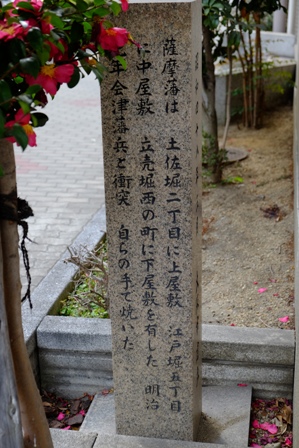 薩摩藩は 土佐堀二丁目に上屋敷 江戸堀五丁目
に中屋敷 立売堀西の町に下屋敷を有した 明治
年会津藩兵と衝突 自らの手で焼いた